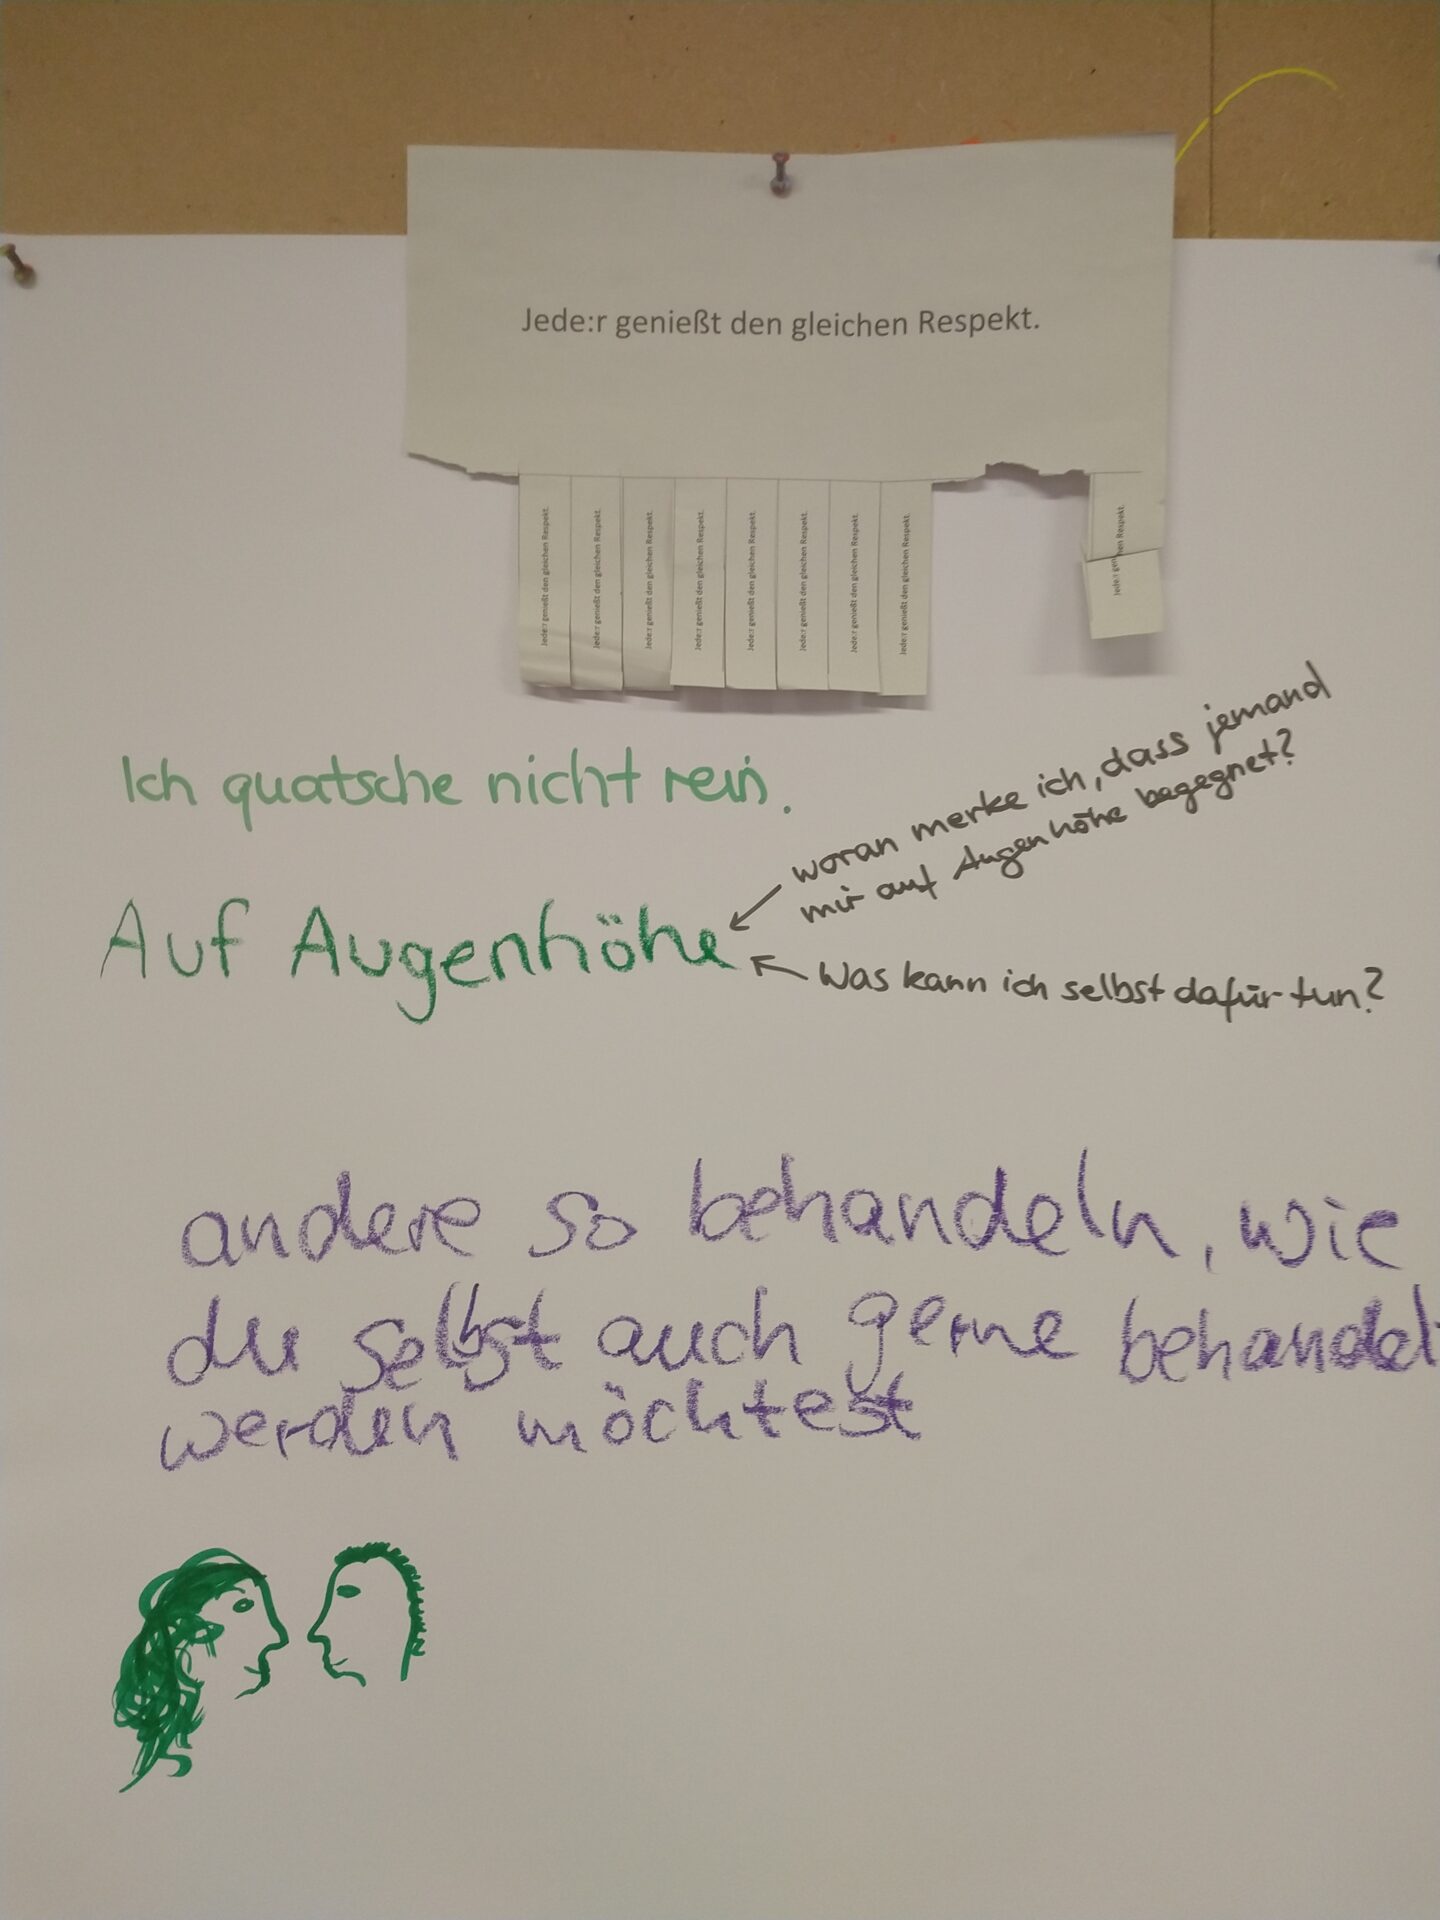 Jede:r genießt den gleichen Respekt.
Jede:r genießt den gleichen Respekt.
Jede:r genießt den gleichen Respekt.
Jede:r genießt den gleichen Respekt.
Jede:r genießt den gleichen Respekt.
Jede:r genießt den gleichen Respekt.
Jede:r genießt den gleichen Respekt.
Jede:r genießt den gleichen Respekt.
Jede:r genießt den gleichen Respekt.
Jede:r hen Respekt.
Ich quatsche nicht rein.
woran merke ich, dass jemand
mir auf Augenhöhe begegnet?
Auf Augenhöhe
Was kann ich selbst dafür tun?
andere so behandeln, wie
du selbst auch gerne behandelt
werden möchtest